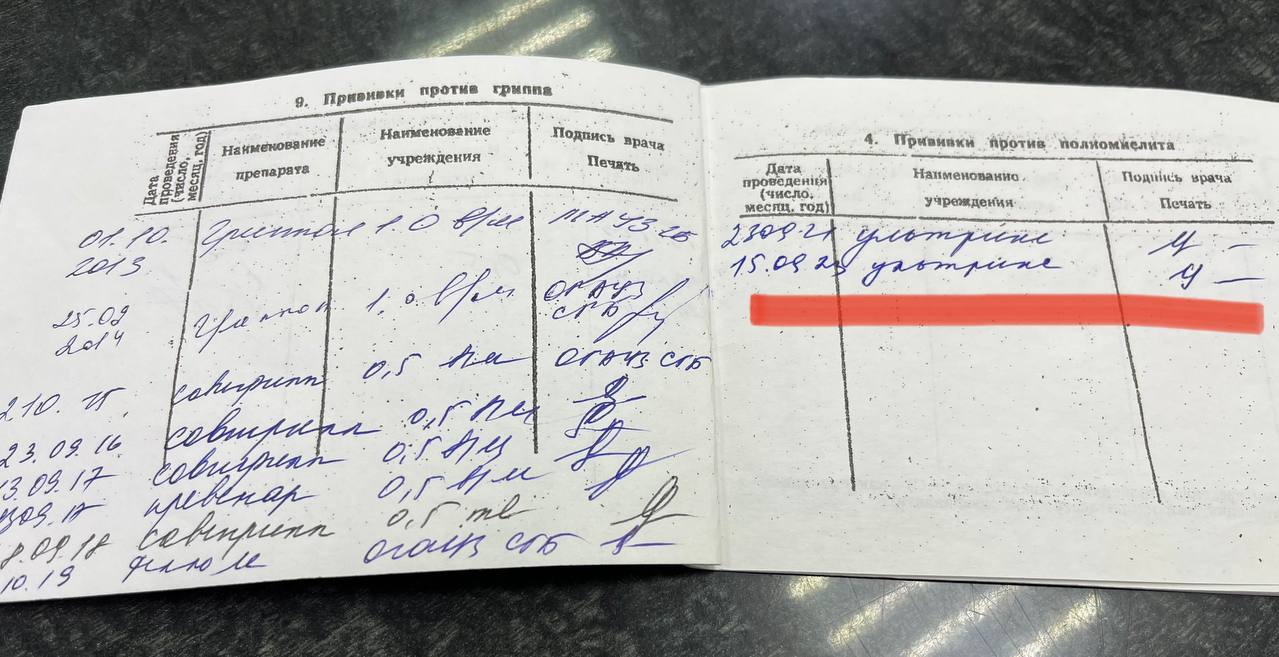 9. Прививки против гриппа
Дата проведения (число, месяц, год)
Наименование препарата
Наименование учреждения
Подпись врача Печать
01.10. 2013 Гриппол 1.0 в/м
25.09 2014 Гриппол 1.0 в/м
2.10. 15 совигрипп 0,5 в/м ОГАУЗ СГБ
23.09.16 совигрипп 0,5 в/м
13.09.17 совигрипп 0,5 в/м
09.17 превенар 0,5 в/м
8.09.18 совигрипп 0,5
10.19 ОГАУЗ СГБ
4. Прививки против полиомиелита
Дата проведения (число, месяц, год)
Наименование учреждения
Подпись врача Печать
23.09.21 ультрикс
15.09.23 ультрикс